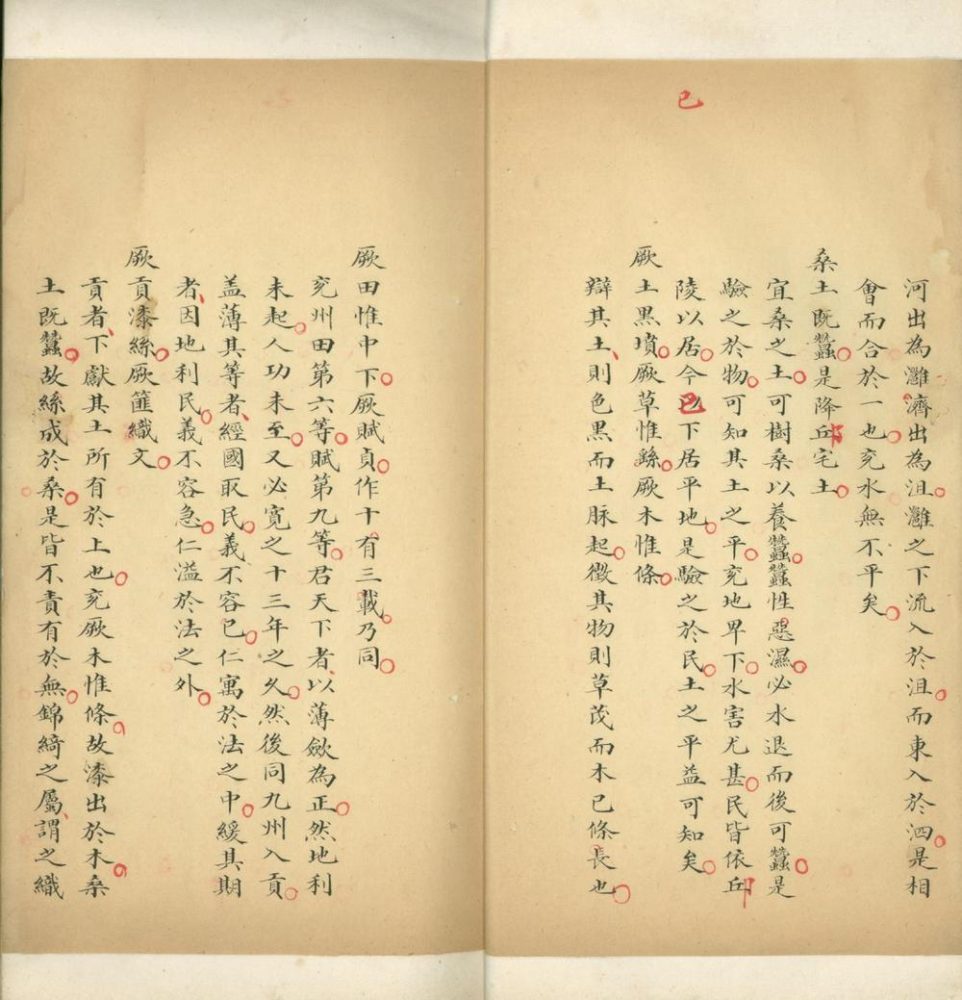 河出為灉濟出為沮灉之下流入於沮而東入於泗是相
會而合於一也兖水無不平矣
桑土既蠶是降丘宅土
宜桑之土可樹桑以養蠶蠶性惡濕必水退而後可蠶是
驗之於物可知其土之平兖地卑下水害尤甚民皆依丘
陵以居今已下居平地是驗之於民土之平益可知矣
已
厥土黑墳厥草惟繇厥木惟條
辯其土則色黑而土脉起徵其物則草茂而木已條長也
厥田惟中下厥賦貞作十有三載乃同
兖州田第六等賦第九等君天下者以薄斂為正然地利
未起人功未至又必寛之十三年之久然後同九州入貢
盖薄其等者經國取民義不容已仁寓於法之中緩其期
者因地利民義不容急仁溢於法之外
厥貢漆絲厥篚織文
貢者下獻其土所有於上也兖厥木惟條故漆出於木桑
土既蠶故絲成於桑是皆不責有於無錦綺之屬謂之織